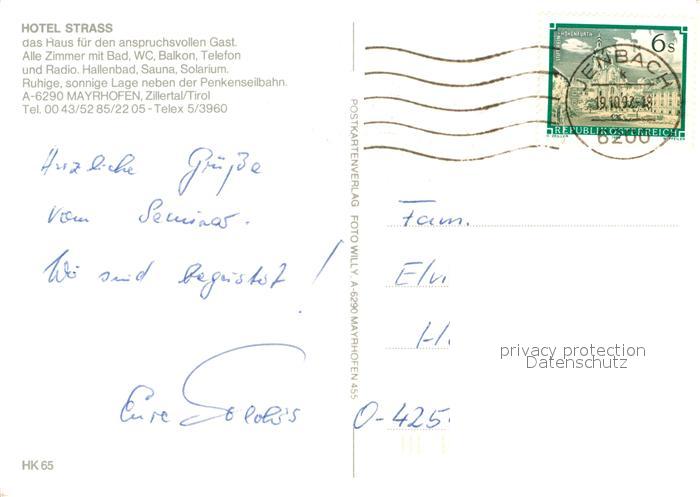 HOTEL STRASS
das Haus für den anspruchsvollen Gast.
Alle Zimmer mit Bad, WC, Balkon, Telefon
und Radio. Hallenbad, Sauna, Solarium.
Ruhige, sonnige Lage neben der Penkenseilbahn.
A-6290 MAYRHOFEN, Zillertal/Tirol
Tel. 00 43/52 85/22 05 - Telex 5/3960
Herzliche Grüße
vom Seminar.
Wir sind begeistert!
Eure
HK 65
POSTKARTENVERLAG FOTO WILLY, A-6290 MAYRHOFEN 455
6s
REPUBLIK ÖSTERREICH
JENBACH
6200
Fam.
H.
O-425
privacy protection
Datenschutz